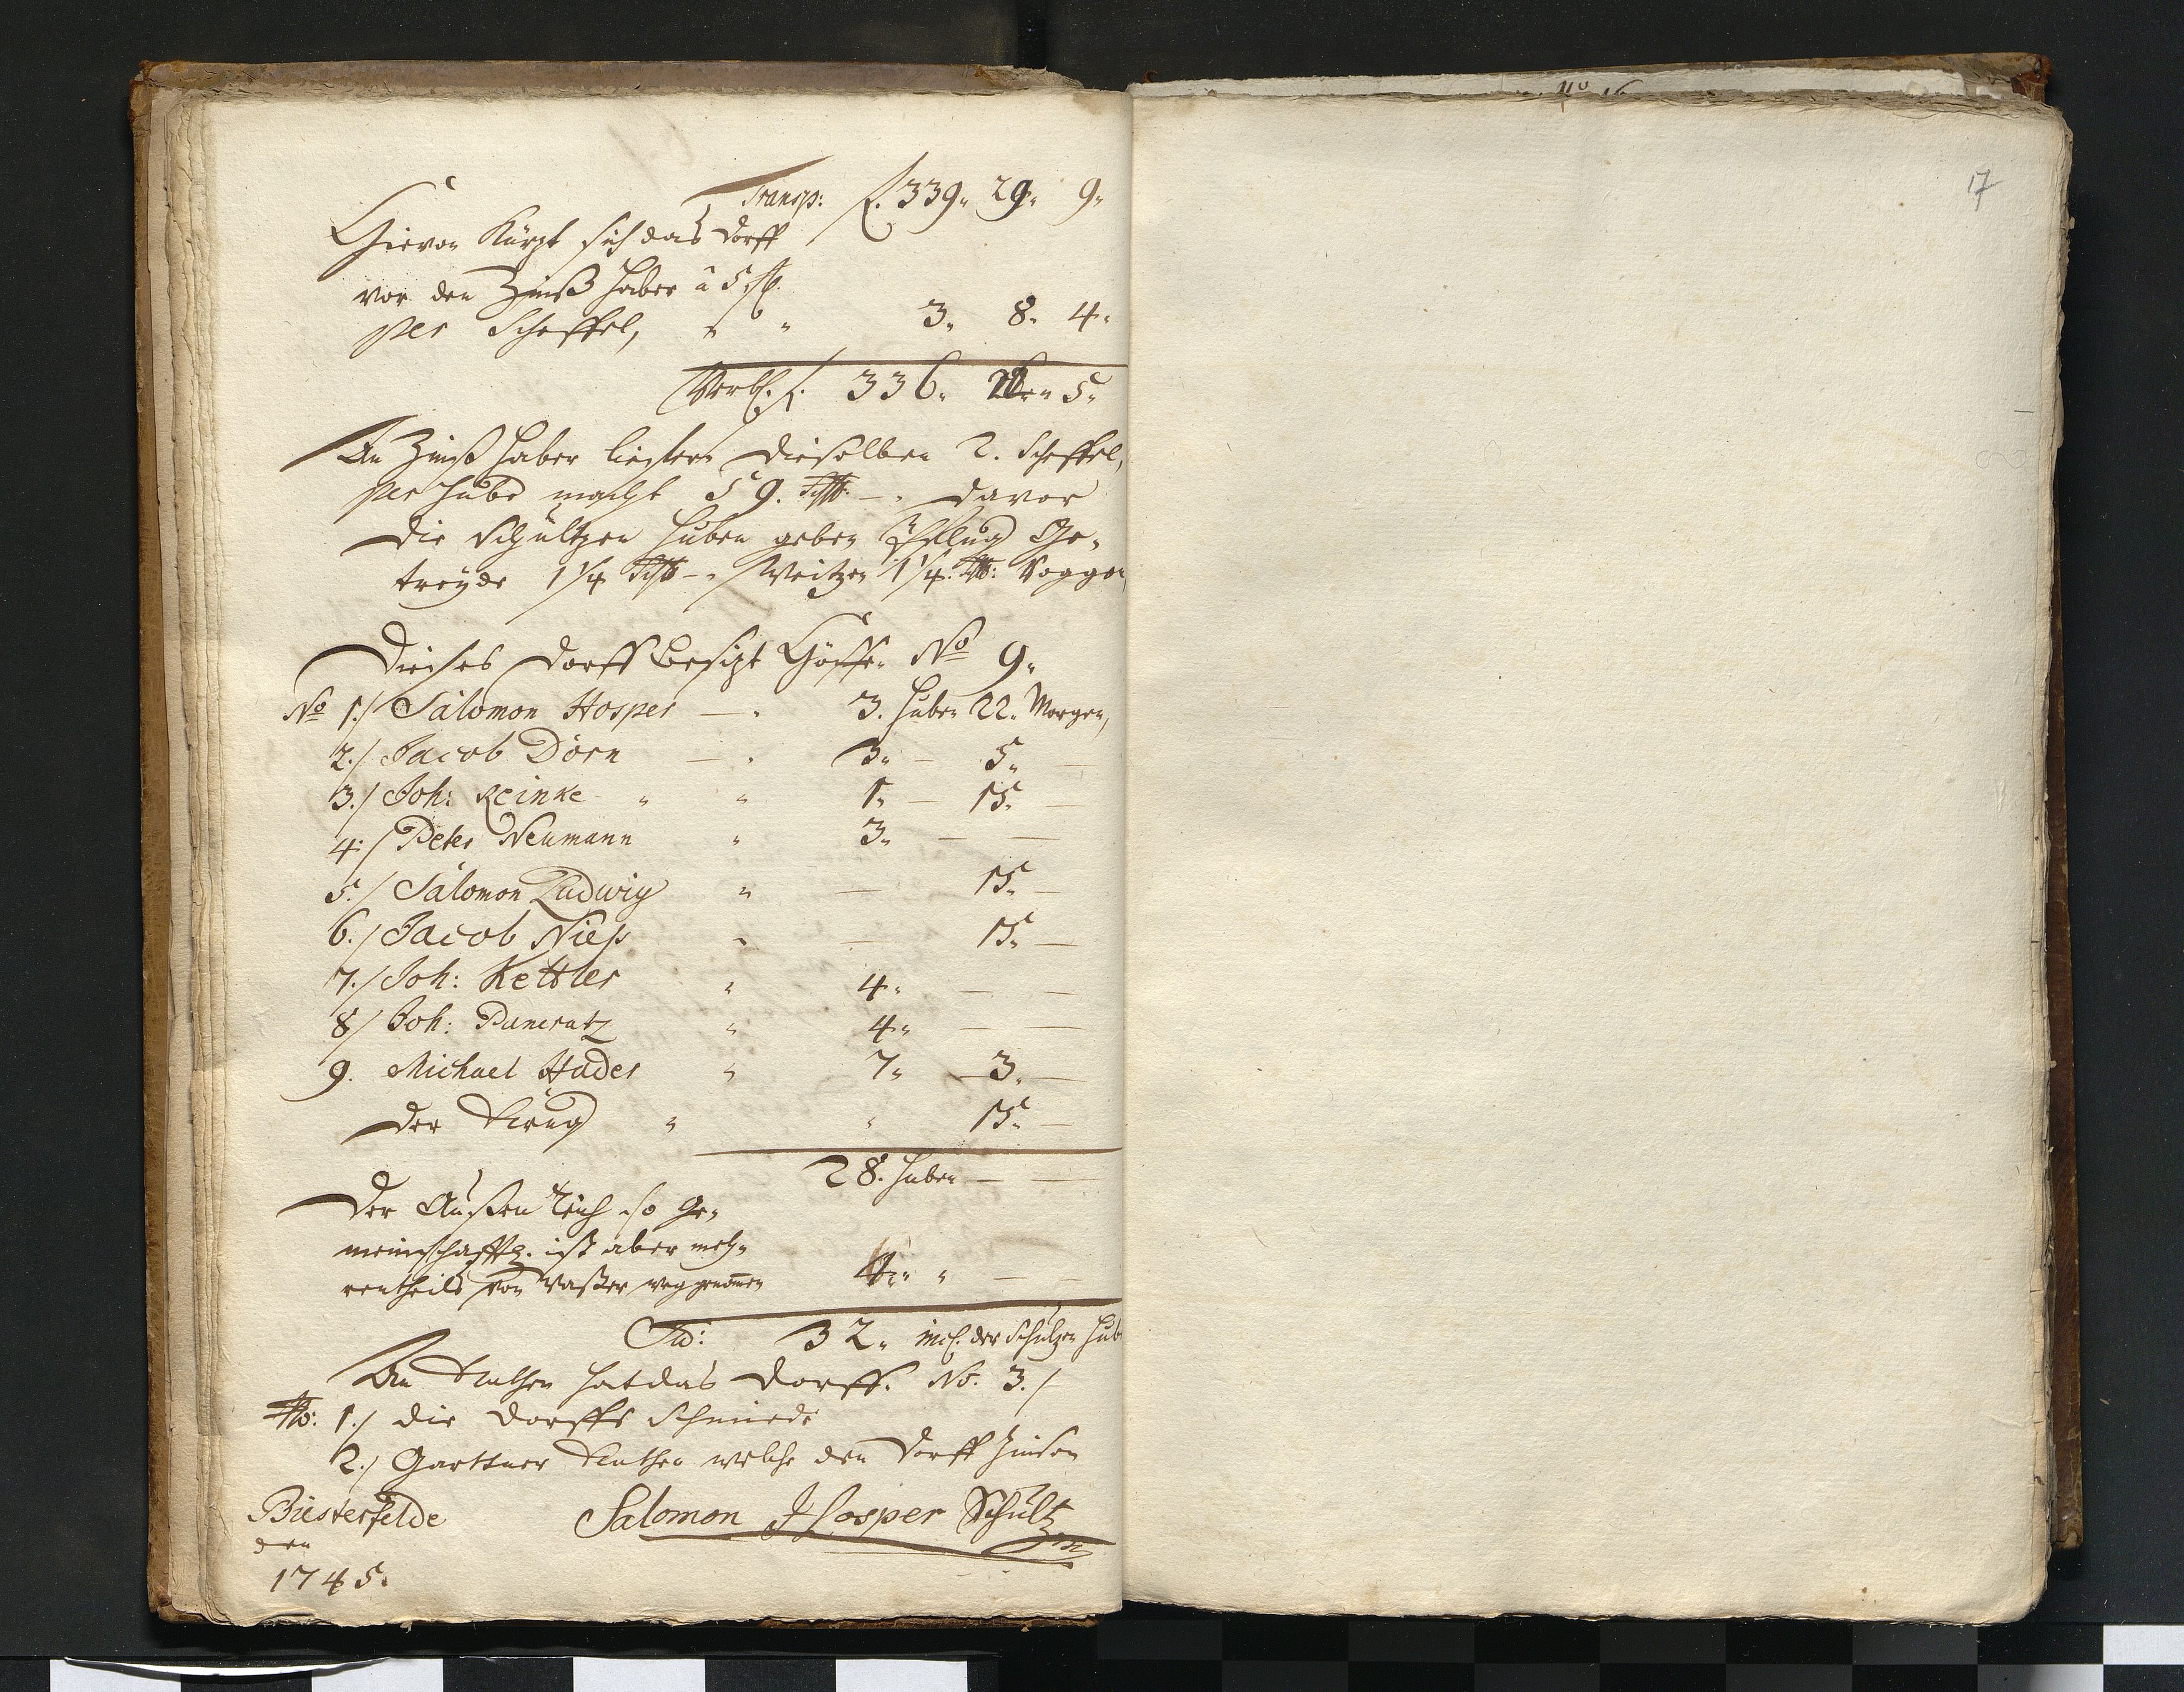 Transp: f. 339„ 29„ 9„
Hievon Kürzt sich das Dorff
vor den Zinß Haber â 5 ß.
per Scheffel, „ „ 3„ 8„ 4„
Verbl. f. 336„ 5„
An Zinß Haber liefern dieselben 2. Scheffel,
per Hube macht 59. Schff. –„ davor
die Schultzen Huben geben Pflug Ge„
treyde 1 1/4 Schff –„ Weitzen 1 1/4. Schff: Roggen
Dieses Dorff besizt Höffe„ No 9„
No 1./ Salomon Hosper — „ 3. Huben 22„ Morgen,
2./ Jacob Dörn — „ 3„ — 5„ —
3./ Joh: Reinke „ „ 1„ — 15„ —
4./ Peter Neumann „ 3„ — —
5./ Salomon Ludwig „ — 15„ —
6./ Jacob Niep „ — 15„ —
7./ Joh: Kettler „ 4„ — —
8/ Joh: Pancratz „ 4„ — —
9. Michael Hader „ 7„ — 3„ —
der Krug „ „ 15„ —
28. Huben — —
Der Außen Teich so ge„
meinschafftl. ist aber meh„
rentheils von Waßer weggenomen 4„ „ — —
32„ incl. der Schulzen Hub
An Kathen hat das Dorff. No. 3./
No: 1./ die Dorffs Schmiede
2./ Garttner Kathen welche den Dorff Zinsen
Biesterfelde Salomon Hosper Schultz
den
1745.
17